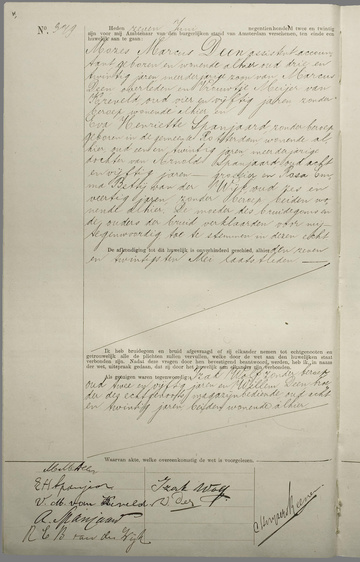 No. 379
Heden zeven Juni negentienhonderd twee en twintig
zijn voor mij Ambtenaar van den burgerlijken stand van Amsterdam verschenen, ten einde een
huwelijk aan te gaan:
Mozes Marcus Deen, assistent accoun-
tant, geboren en wonende alhier, oud drie en
twintig jaren, meerderjarige zoon van Marcus
Deen, overleden en Vrouwtje Meijer van
Kreveld, oud vier en vijftig jaren, zonder
beroep, wonende alhier en
Eva Henriette Spanjaard, zonder beroep,
geboren in de gemeente Rotterdam, wonende al-
hier, oud een en twintig jaren, meerderjarige
dochter van Arnold Spanjaard, oud acht
en vijftig jaren en Rosa Em-
ma Betsy van der Wijk, oud zes en
veertig jaren, zonder beroep, beiden wo-
nende alhier. De moeder des bruidegoms en
de ouders der bruid verklaarden vóór mij
tegenwoordig toe te stemmen in dezen echt.
De afkondiging tot dit huwelijk is onverhinderd geschied, alhier den zeven
en twintigsten Mei laatstleden
Ik heb bruidegom en bruid afgevraagd of zij elkander nemen tot echtgenooten en
getrouwelijk alle de plichten zullen vervullen, welke door de wet aan den huwelijken staat
verbonden zijn. Nadat deze vragen door hen bevestigend beantwoord werden, heb ik, in naam
der wet, uitspraak gedaan, dat zij door het huwelijk aan elkander zijn verbonden.
Als getuigen waren tegenwoordig: Izak Wolf, zonder beroep,
oud twee en vijftig jaren en Willem Deen, broe-
der des echtgenoots, magazijnbediende, oud acht
en twintig jaren, beiden wonende alhier.
Waarvan akte, welke overeenkomstig de wet is voorgelezen.
M. M. Deen
E H Spanjaard
V. M. van Kreveld
A. Spanjaard
R. E. B. van der Wijk
Izak Wolf
W. Deen